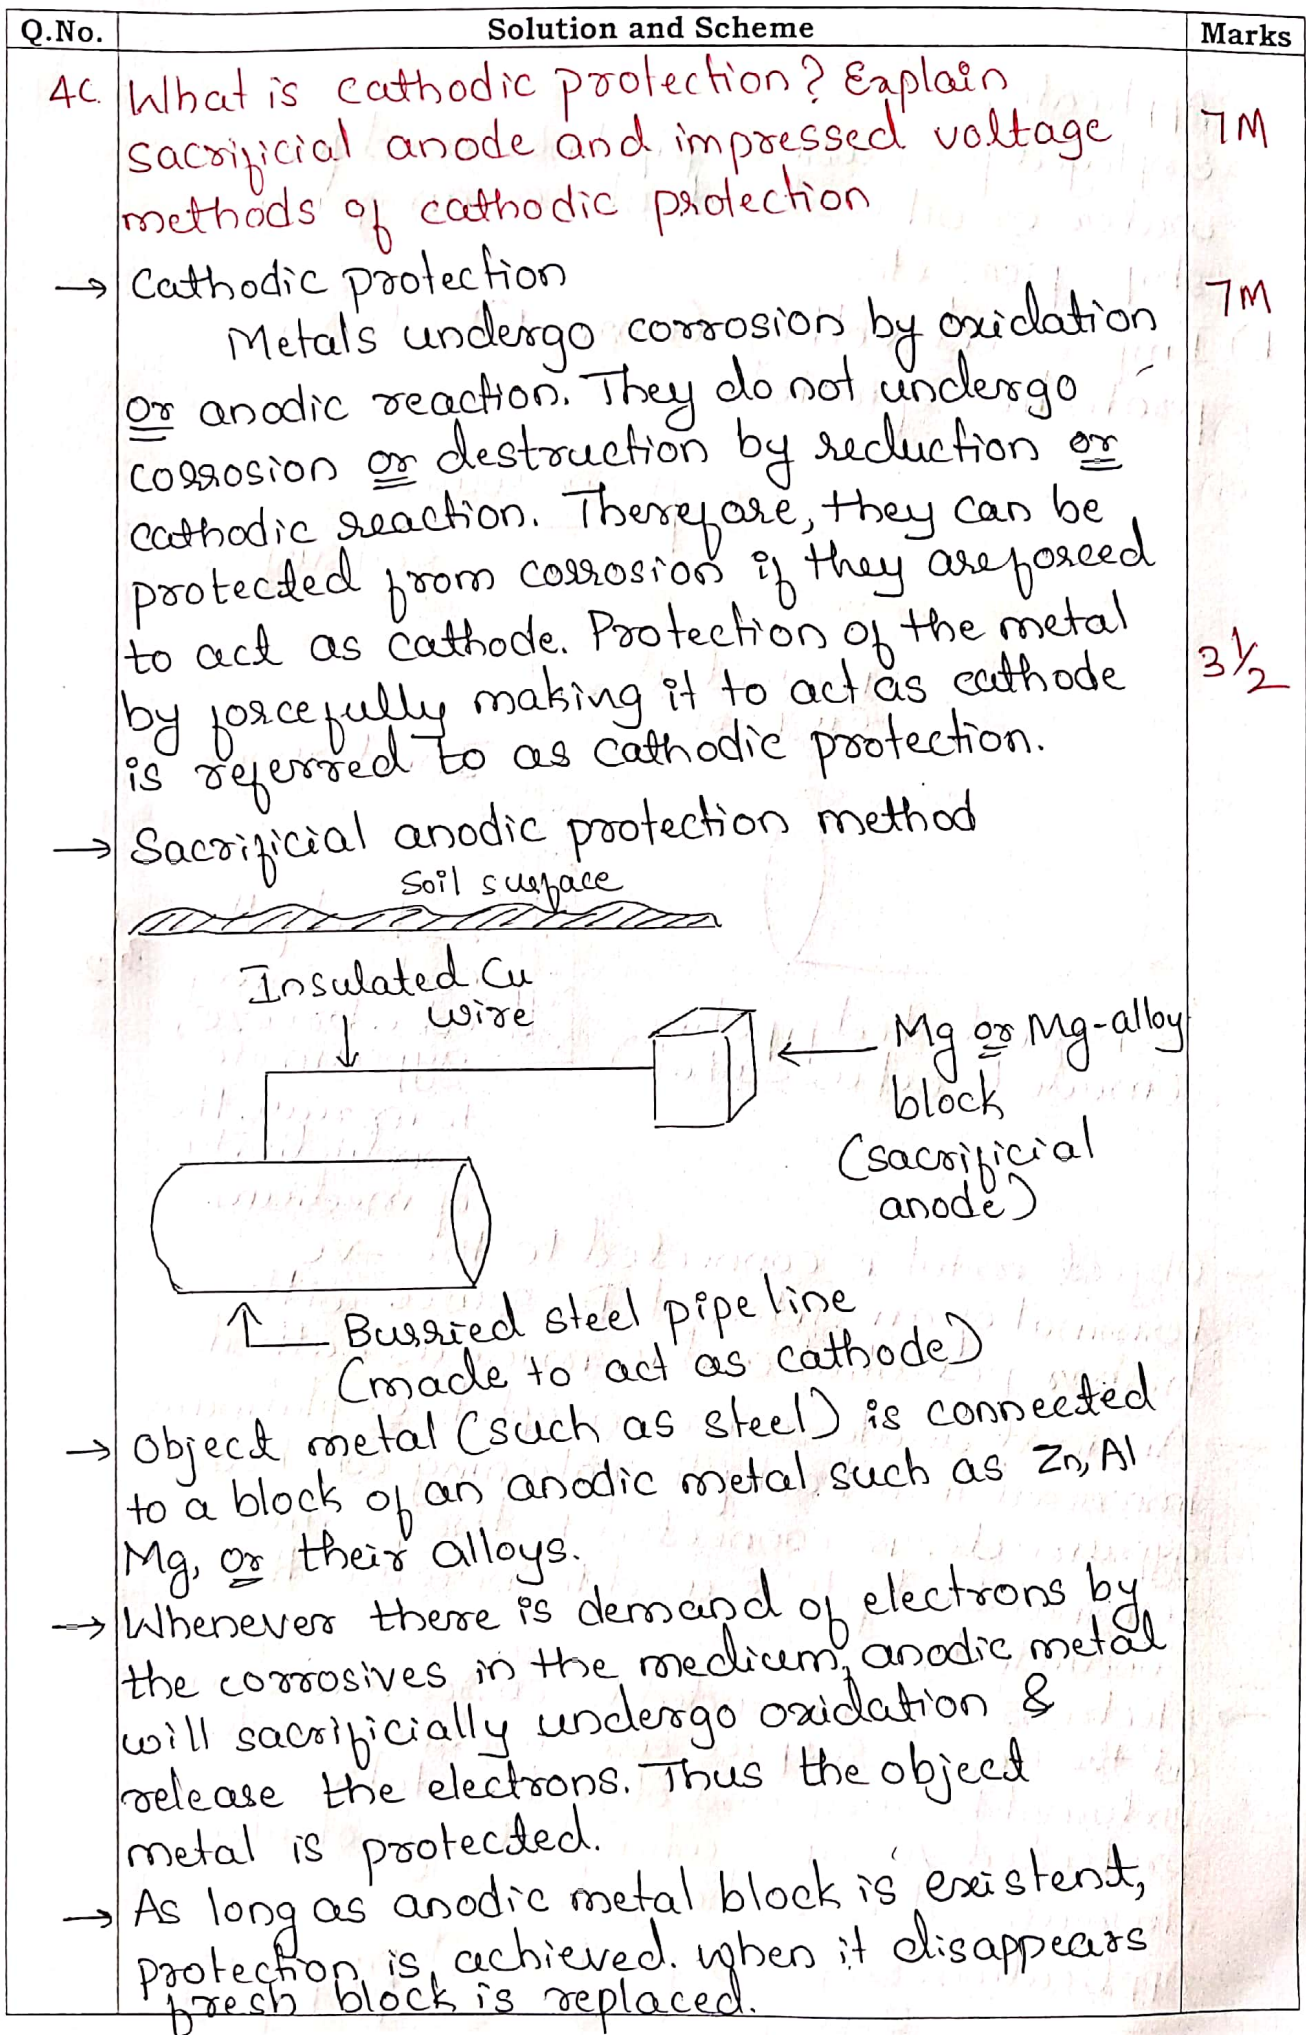 Q.No. Solution and Scheme Marks
4C. What is cathodic protection? Explain
sacrificial anode and impressed voltage 7M
methods of cathodic protection
→ Cathodic protection 7M
Metals undergo corrosion by oxidation
or anodic reaction. They do not undergo
corrosion or destruction by reduction or
cathodic reaction. Therefore, they can be
protected from corrosion if they are forced
to act as cathode. Protection of the metal 3½
by forcefully making it to act as cathode
is referred to as cathodic protection.
→ Sacrificial anodic protection method
Soil surface
Insulated Cu
wire
Mg or Mg-alloy
block
(sacrificial
anode)
Burried steel pipe line
(made to act as cathode)
→ Object metal (such as steel) is connected
to a block of an anodic metal such as Zn, Al
Mg, or their alloys.
→ Whenever there is demand of electrons by
the corrosives in the medium, anodic metal
will sacrificially undergo oxidation &
release the electrons. Thus the object
metal is protected.
→ As long as anodic metal block is existent,
protection is achieved. when it disappears
fresh block is replaced.